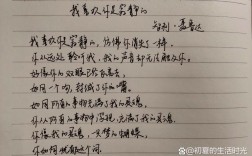 我喜欢你是寂静的
智利·聂鲁达
我喜欢你是寂静的,仿佛你消失了一样,
你从远处聆听我,我的声音却无法触及你。
好像你的双眼已经飞离去,
如同一个吻,封缄了你的嘴。
如同所有的事物充满了我的灵魂,
你从所有的事物中浮现,充满了我的灵魂。
你像我的灵魂,一只梦的蝴蝶,
你如同忧郁这个词。
@初夏的生活时光